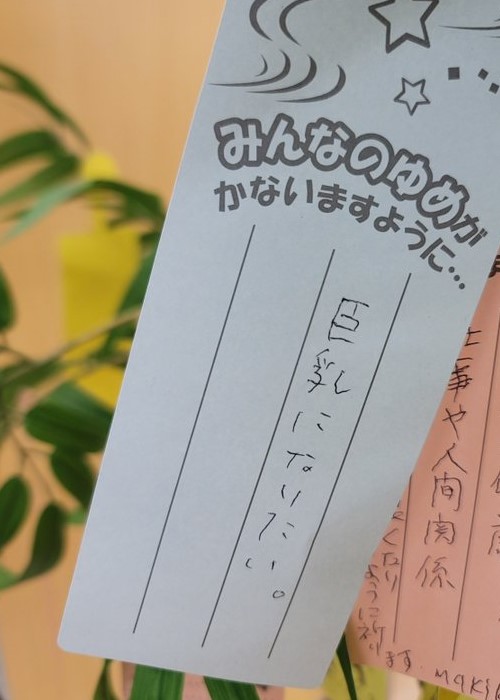 みんなのゆめが
かないますように…
巨乳になりたい。
仕事や人間関係
ように祈り
ます。maki